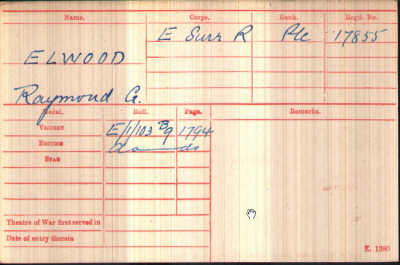 Name. Corps. Rank. Regtl. No.
ELWOOD E Surr R Pte 17855
Raymond G.
Medal. Roll. Page. Remarks.
Victory E/1/103 B9 1794
British do do
Star
Theatre of War first served in
Date of entry therein
K. 1380